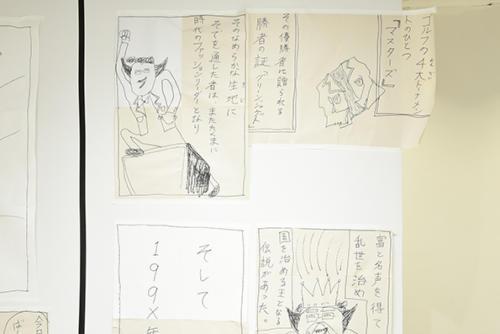 ゴルフの4大トーナメン
トのひとつ
「マスターズ」
その優勝者に贈られる
勝者の証「グリーンジャケット」
そのなめらかな生地に
そでを通した者は、またたくまに
時代のファッションリーダーとなり
富と名声を得て
乱世を治め
国を治める王となる
伝説があった。
そして
199X年